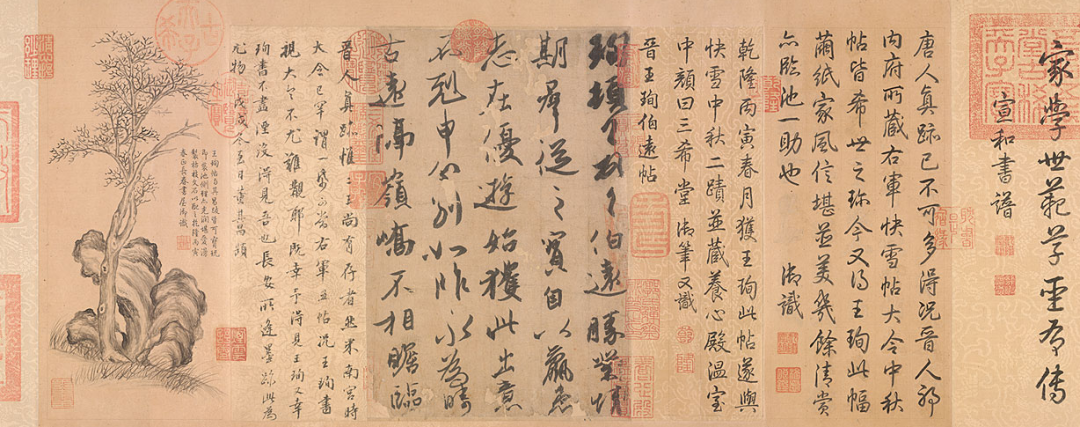 家學世範草聖有傳
宣和書譜
唐人真跡已不可多得況晉人耶
內府所藏右軍快雪帖大令中秋
帖皆希世之珍今又得王珣此幅
繭紙家風信堪並美幾餘清賞
亦臨池一助也 御識
乾隆丙寅春月獲王珣此帖遂與
快雪中秋二蹟並藏養心殿溫室
中顏曰三希堂 御筆又識
晉王珣伯遠帖
珣頓首頓首伯遠勝業情
期羣從之寶自以羸患
志在優遊始獲此出意
不剋申分別如昨永為疇
古遠隔嶺嶠不相瞻臨
晉人真跡惟二王尚有存者然米南宮時
大令已罕謂一紙可當右軍五帖況王珣書
視大令不尤難覯耶既幸予得見王珣又幸
珣書不盡湮沒得見吾也長安所逢墨跡此為
尤物戊戌冬至日董其昌題
王珣帖與其昌跋皆可寶玩
即裝池側理亦光潤堪愛漫
製枯枝文石以配之乾隆丙寅
春正長春書屋御識